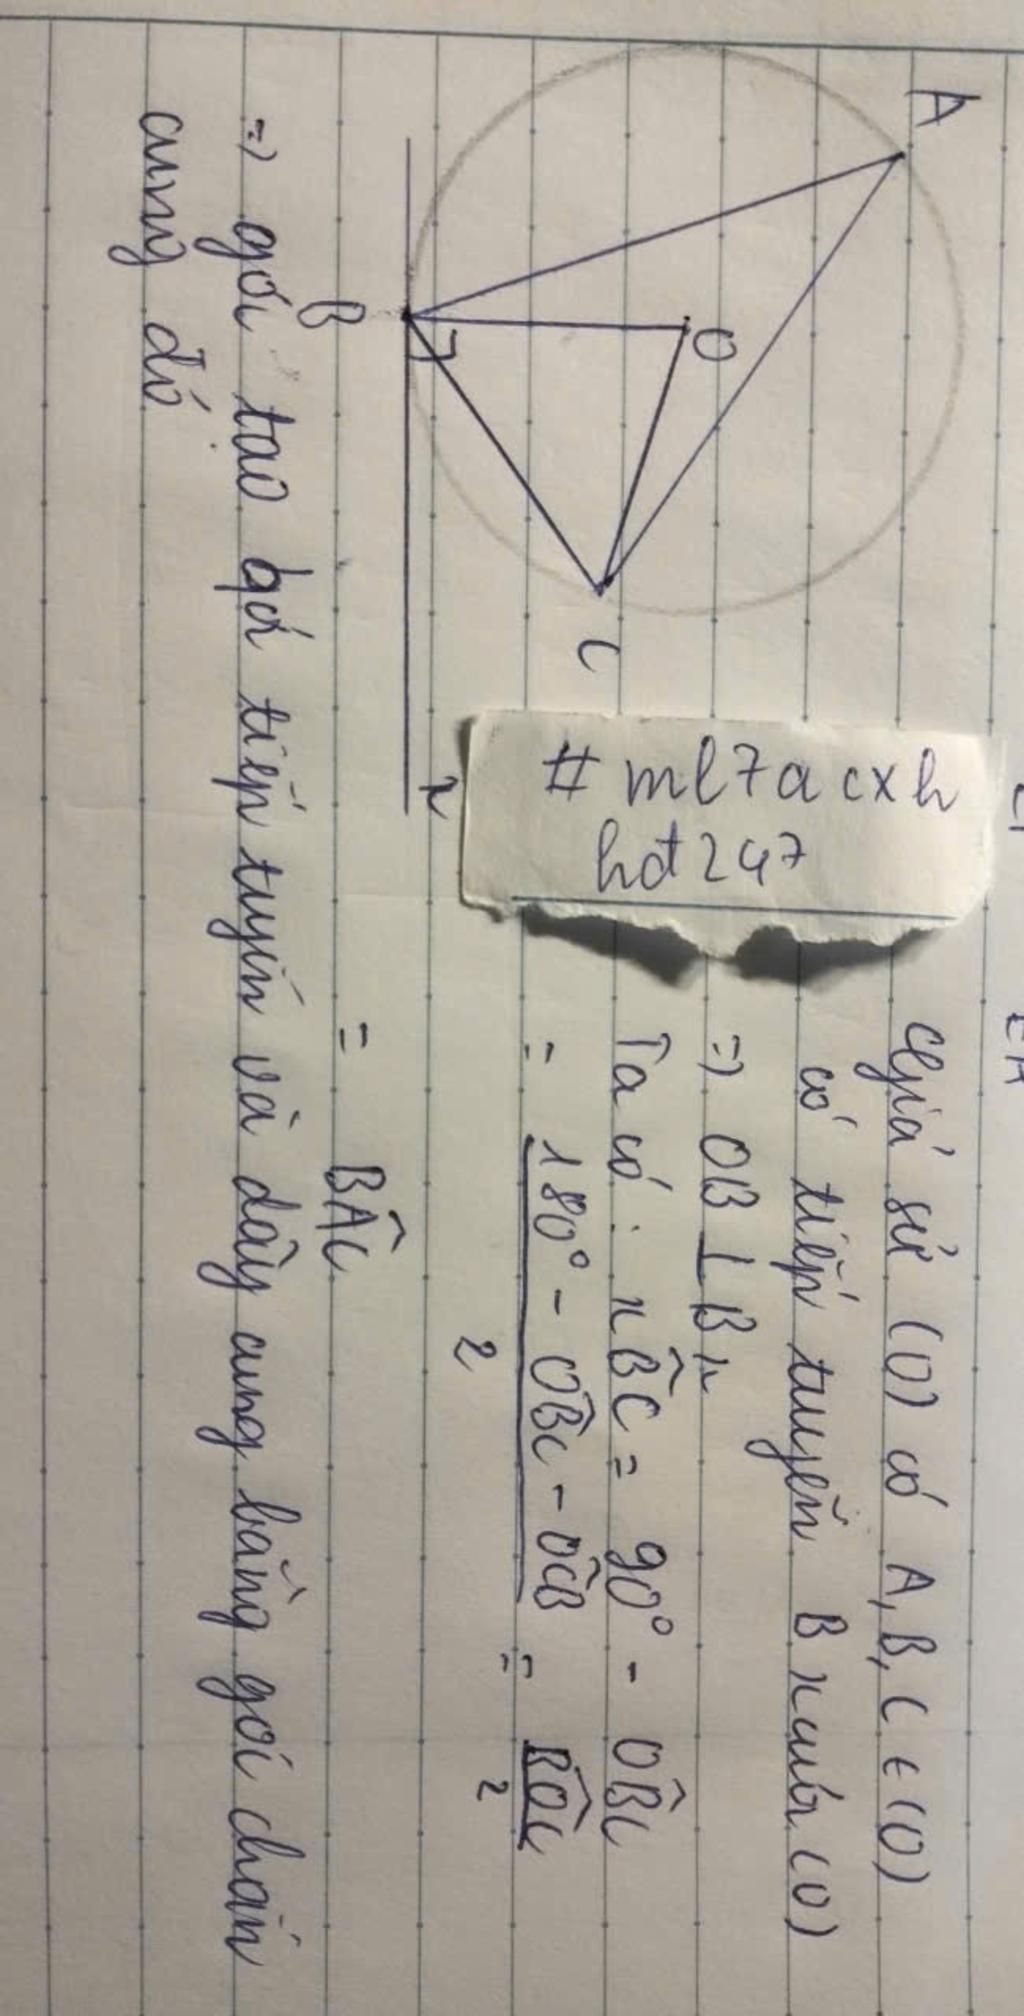 A
O
B
C
x
# ml7a cxh
hdt247
Giả sử (O) có A, B, C ∈ (O)
có tiếp tuyến B x của (O)
=) OB ⊥ Bx
Ta có : xB̂C = 90° - OB̂C
= 180° - OB̂C - OĈB / 2 = BÔC / 2
= BÂC
=) góc tạo bởi tiếp tuyến và dây cung bằng góc chắn
cung đó